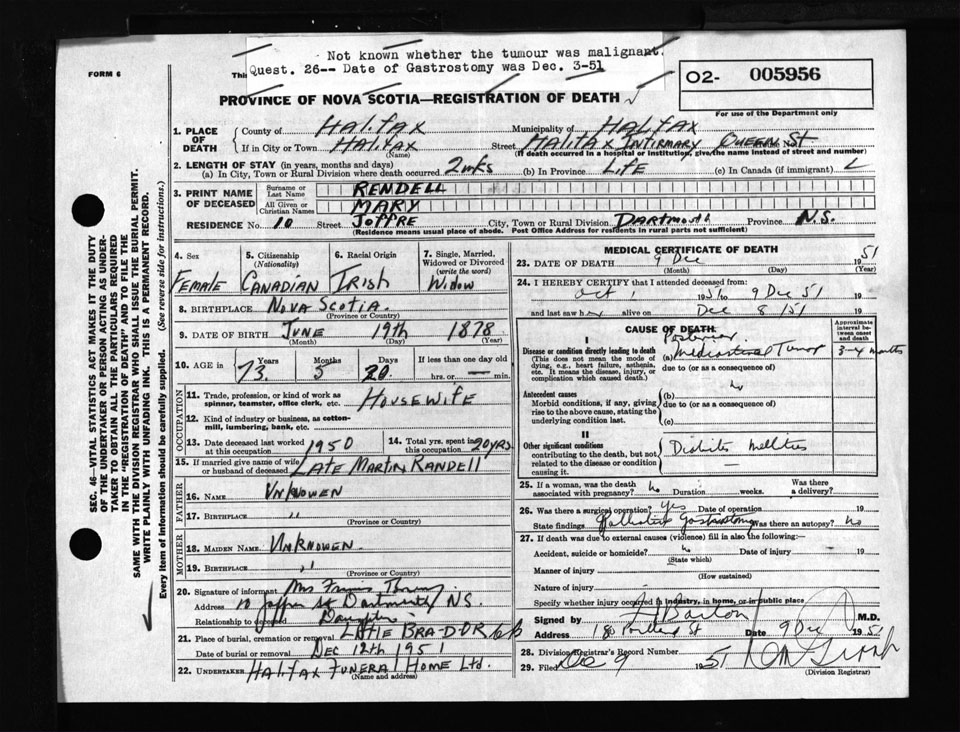 Not known whether the tumour was malignant.
Quest. 26-- Date of Gastrostomy was Dec. 3-51
FORM 6
This
O2- 005956
PROVINCE OF NOVA SCOTIA—REGISTRATION OF DEATH
For use of the Department only
1. PLACE OF DEATH
County of HALIFAX Municipality of HALIFAX
If in City or Town HALIFAX (Name) Street HALIFAX INFIRMARY QUEEN ST No.
(If death occurred in a hospital or institution, give the name instead of street and number)
2. LENGTH OF STAY (in years, months and days)
(a) In City, Town or Rural Division where death occurred 2 wks (b) In Province LIFE (c) In Canada (if immigrant) L
3. PRINT NAME OF DECEASED
Surname or Last Name RENDELL
All Given or Christian Names MARY
RESIDENCE No. 10 Street JOFFRE City, Town or Rural Division DARTMOUTH Province N.S.
(Residence means usual place of abode. Post Office Address for residents in rural parts not sufficient)
4. Sex FEMALE
5. Citizenship (Nationality) CANADIAN
6. Racial Origin IRISH
7. Single, Married, Widowed or Divorced (write the word) WIDOW
8. BIRTHPLACE NOVA SCOTIA
(Province or Country)
9. DATE OF BIRTH JUNE 19th 1878
(Month) (Day) (Year)
10. AGE in Years 73 Months 5 Days 20 If less than one day old hrs. or — min.
OCCUPATION
11. Trade, profession, or kind of work as spinner, teamster, office clerk, etc. HOUSEWIFE
12. Kind of industry or business, as cotton-mill, lumbering, bank, etc.
13. Date deceased last worked at this occupation 1950
14. Total yrs. spent in this occupation 20 YRS
15. If married give name of wife or husband of deceased LATE MARTIN RANDELL
FATHER
16. NAME UNKNOWEN
17. BIRTHPLACE "
(Province or Country)
MOTHER
18. MAIDEN NAME UNKNOWEN
19. BIRTHPLACE "
(Province or Country)
20. Signature of informant Mrs
Address 10 Joffre St Dartmouth N.S.
Relationship to deceased Daughter
21. Place of burial, cremation or removal LITTLE BRA-D-OR
Date of burial or removal DEC 12th 1951
22. UNDERTAKER HALIFAX FUNERAL HOME LTD.
(Name and address)
MEDICAL CERTIFICATE OF DEATH
23. DATE OF DEATH 9 Dec 1951
(Month) (Day) (Year)
24. I HEREBY CERTIFY that I attended deceased from:
Oct 1 1951 to 9 Dec 51 19
and last saw her alive on Dec 8 / 51 19
CAUSE OF DEATH
Approximate interval between onset and death
I
Disease or condition directly leading to death
(This does not mean the mode of dying, e.g., heart failure, asthenia, etc. It means the disease, injury, or complication which caused death.)
Posterior
(a) Mediastinal Tumor 3-4 months
due to (or as a consequence of)
Antecedent causes
Morbid conditions, if any, giving rise to the above cause, stating the underlying condition last.
(b) No
due to (or as a consequence of)
(c)
II
Other significant conditions contributing to the death, but not related to the disease or condition causing it.
Diabetes Mellitus
25. If a woman, was the death associated with pregnancy? No Duration weeks. Was there a delivery?
26. Was there a surgical operation? Yes Date of operation 19
State findings Palliative Gastrostomy Was there an autopsy? No
27. If death was due to external causes (violence) fill in also the following:—
Accident, suicide or homicide? No Date of injury 19
(State which)
Manner of injury
(How sustained)
Nature of injury
Specify whether injury occurred in industry, in home, or in public place
Signed by Barton M.D.
Address 180 Portland St Date 9 Dec 1951
28. Division Registrar's Record Number
29. Filed Dec 9 1951
(Division Registrar)
SEC. 46—VITAL STATISTICS ACT MAKES IT THE DUTY
OF THE UNDERTAKER OR PERSON ACTING AS UNDER-
TAKER TO OBTAIN ALL THE PARTICULARS REQUIRED
IN THE "REGISTRATION OF DEATH" AND TO FILE THE
SAME WITH THE DIVISION REGISTRAR WHO SHALL ISSUE THE BURIAL PERMIT.
WRITE PLAINLY WITH UNFADING INK. THIS IS A PERMANENT RECORD.
Every item of information should be carefully supplied. (See reverse side for instructions.)